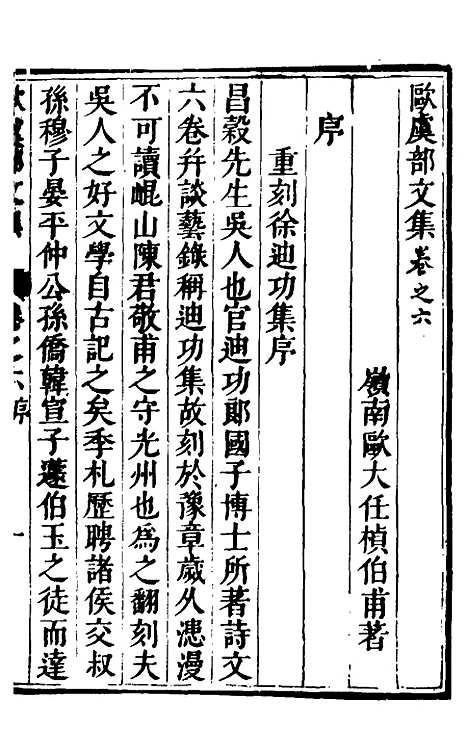 歐虞部文集卷之六
嶺南歐大任楨伯甫著
序
重刻徐迪功集序
昌穀先生吳人也官迪功郎國子博士所著詩文
六卷并談藝錄稱迪功集故刻於豫章歲久漶漫
不可讀崐山陳君敬甫之守光州也為之翻刻夫
吳人之好文學自古記之矣季札歷聘諸侯交叔
孫穆子晏平仲公孫僑韓宣子蘧伯玉之徒而達
卷之六序 一